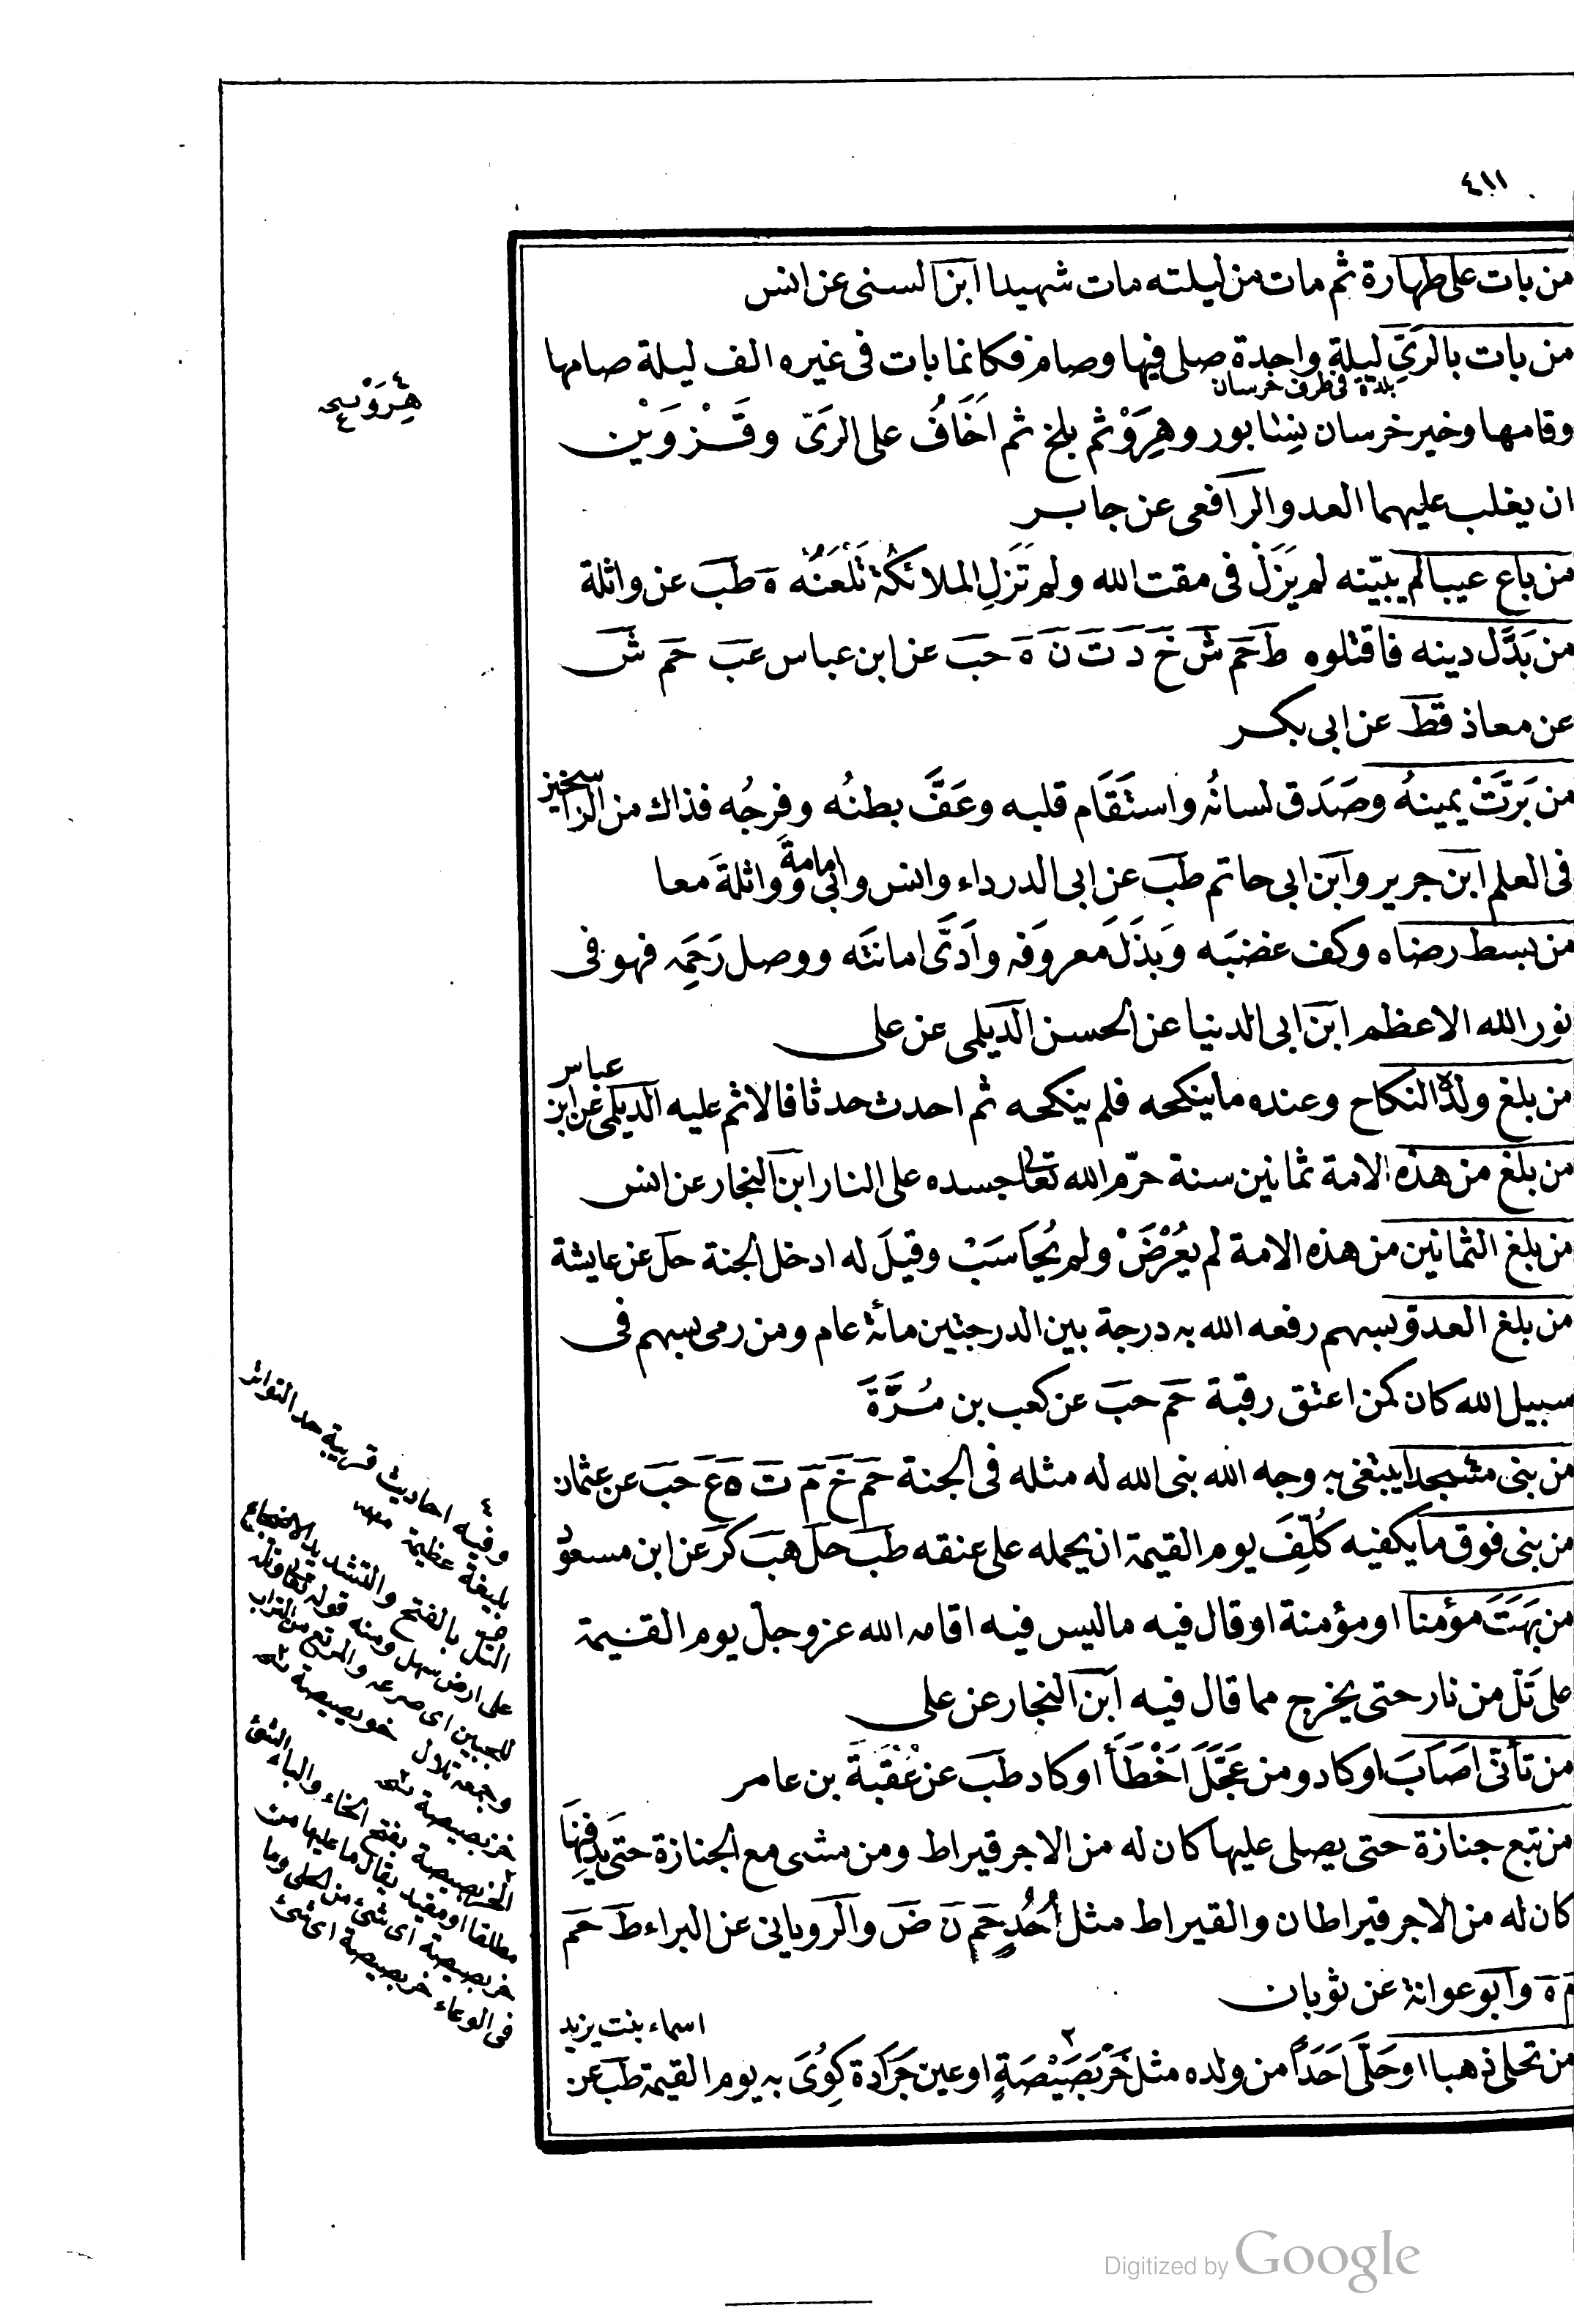 ٤١١
من بات على طهارة ثم مات من ليلته مات شهيدا ابن السنى عن انس
من بات بالرَىِّ ليلة واحدة صلى فيها وصام فكانما بات فى غيره الف ليلة صامها
بلدة فى طرف خرسان
وقامها وخير خرسان نِيسابور وهِرَوْ ثم بلخ ثم اَخَافُ على الرَىّ وقَزْوَيْن
ان يغلب عليهما العدو الرافعى عن جابر
من باع عيبا لم يبيّنه لم يَزَلْ فى مقت الله ولم تَزَلِ الملائكة تَلْعَنُهُ ه طب عن واثلة
من بَدَّل دينه فاقتلوه ط حم ش خ د ت ن ه حب عن ابن عباس عب حم ش
عن معاذ قط عن ابى بكر
من بَرَّتْ يمينهُ وصَدَق لسانُه واستَقَام قلبه وعَفَّ بطنُه وفرجُه فذاك من الراسخين
فى العلم ابن جرير وابن ابى حاتم طب عن ابى الدرداء وانس وابى امامة وواثلة معا
من بسط رضاه وكف غضبَه وَبذَلَ معروفَه واَدَّى امانتَه ووصل رَحِمَه فهو فى
نور الله الاعظم ابن ابى الدنيا عن الحسن الديلمى عن على
من بلغ ولدُه النكاح وعنده ما ينكحه فلم ينكحه ثم احدث حدثا فالاثم عليه الديلمى عن ابن عباس
من بلغ من هذه الامة ثمانين سنة حرّم الله تعالى جسده على النار ابن النجار عن انس
من بلغ الثمانين من هذه الامة لم يُعْرَضْ ولم يُحَاسَبْ وقيلَ له ادخل الجنة حل عن عايشة
من بلغ العدوّ بسهم رفعه الله به درجة بين الدرجتين مائة عام ومن رمى بسهم فى
سبيل الله كان كمن اعتق رقبة حم حب عن كعب بن مُرَّةَ
من بنى مسجدا يبتغى به وجه الله بنى الله له مثله فى الجنة حم خ م ت ه ع حب عن عثمان
من بنى فوق ما يكفيه كُلِّفَ يوم القيمة ان يحمله على عنقه طب حل هب كر عن ابن مسعود
من بَهَتَ مؤمنا او مؤمنة او قال فيه ما ليس فيه اقامه الله عز وجل يوم القيمة
على تَلّ من نار حتى يخرج مما قال فيه ابن النجار عن على
من تأنّى اصَابَ او كاد ومن عَجَّلَ اَخْطَأَ او كاد طب عن عُقْبَةَ بن عامر
من تبع جنازة حتى يصلى عليها كان له من الاجر قيراط ومن مشى مع الجنازة حتى يدفنها
كان له من الاجر قيراطان والقيراط مثل اُحُدٍ حم ن ض والرويانى عن البراء ط حم
م ه وابو عوانة عن ثوبان
من تحلى ذهبا او حَلَّى اَحَدًا من ولده مثل خَرْبَصَيْصَةٍ او عين جَرَادة كُوِىَ به يوم القيمة طب عن اسماء بنت يزيد
هِرَوْ نسخه
وفيه احاديث قريبة حد التواتر
بليغة عظيمة
التل بالفتح والتشديد الاضجاع
على ارض سهل ومنه قوله تعالى وتله
للجبين اى صرعه والمرتفع من التراب
وجمعه تلال
خويصيصة نسخه
خربصيصة نسخه
الخربصيصة بفتح الخاء والباء الشئ
مطلقا او مقيد يقال ما عليها من
خربصيصة اى شئ من الحلى وما
فى الوعاء خربصيصة اى شئ
Digitized by Google